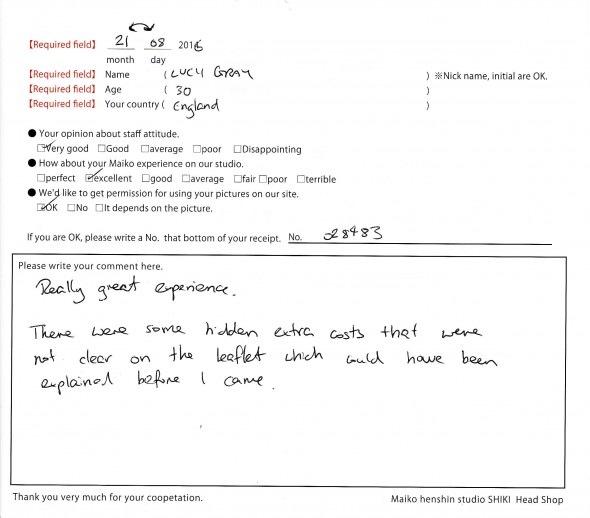 【Required field】 21 08 2016
month day
【Required field】 Name ( LUCY GRAY ) ※Nick name, initial are OK.
【Required field】 Age ( 30 )
【Required field】 Your country ( England )
● Your opinion about staff attitude.
☑Very good □Good □average □poor □Disappointing
● How about your Maiko experience on our studio.
□perfect ☑excellent □good □average □fair □poor □terrible
● We'd like to get permission for using your pictures on our site.
☑OK □No □It depends on the picture.
If you are OK, please write a No. that bottom of your receipt. No. 028483
Please write your comment here.
Really great experience.
There were some hidden extra costs that were
not clear on the leaflet which could have been
explained before I came.
Thank you very much for your coopetation. Maiko henshin studio SHIKI Head Shop